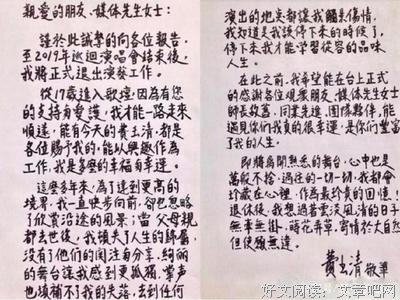 親愛的朋友、媒体先生女士：
謹於此誠摯的向各位報告，
至2019年巡迴演唱會結束後，
我將正式退出演藝工作。
從17歲進入歌壇，因為有您
的支持与愛護，我才能一路走來
順遂，能有今天的費玉清，都是
各位賜予我的，能以興趣作為
工作，我是多麼的幸福与幸運。
這麼多年來，為了達到更高的
境界，我一直快步向前，卻也忽略
了欣賞沿途的風景；當父母親
都去世後，我頓失了人生的歸屬，
沒有了他們的関注与分享，絢麗
的舞台讓我感到更孤獨，掌声
也填補不了我的失落，去到任何
演出的地点都讓我觸景傷情，
我知道是我該停下來的時候了，
停下來我才能學習從容的品味
人生。
在此之前，我希望能在台上正式
的感謝各位觀眾朋友，媒体先生女士
師長故舊，同業先進，團隊夥伴，能
遇見你們我真的很幸運，是你們豐富
了我的人生。
即將離開熟悉的舞台，心中也是
萬般不捨，過往的一切一切，我都會
珍藏在心裡，作為最珍貴的回憶！
退休後，我想過著雲淡風清的日子
無牽無掛、蒔花弄草，寄情於大自然
但使願無違。
費玉清 敬筆
好文阅读：文章吧网